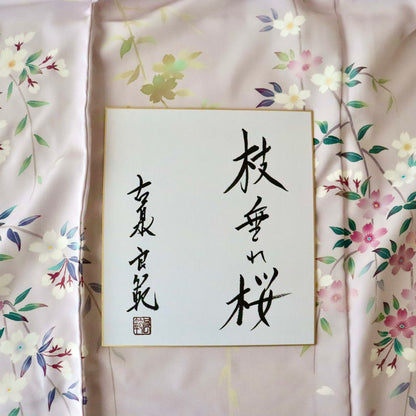 枝垂れ桜
古泉良範